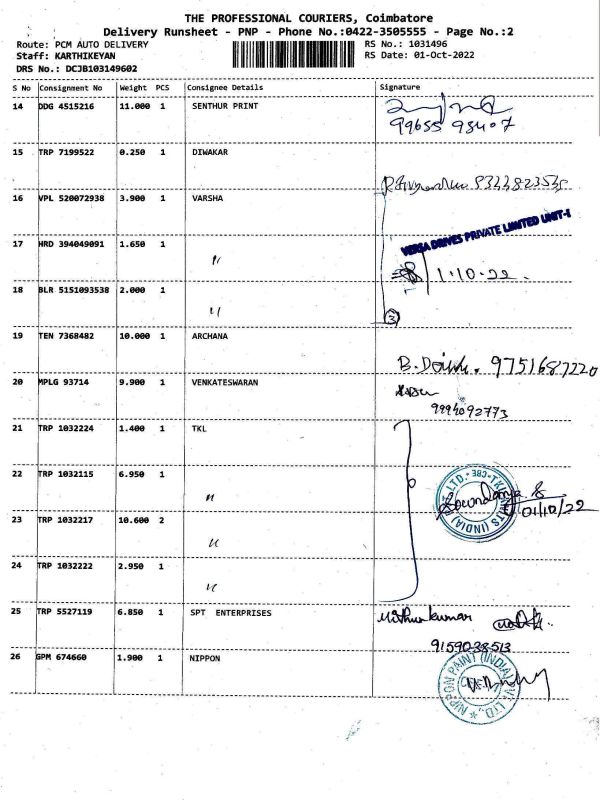 THE PROFESSIONAL COURIERS, Coimbatore
Delivery Runsheet - PNP - Phone No.:0422-3505555 - Page No.:2
Route: PCM AUTO DELIVERY
RS No.: 1031496
Staff: KARTHIKEYAN
RS Date: 01-Oct-2022
DRS No.: DCJB103149602
S No Consignment No Weight PCS Consignee Details Signature
14 DDG 4515216 11.000 1 SENTHUR PRINT
99655 98407
15 TRP 7199522 0.250 1 DIWAKAR
16 VPL 520072938 3.900 1 VARSHA
VERSA DRIVES PRIVATE LIMITED UNIT-I
17 HRD 394049091 1.650 1 "
1.10.22
18 BLR 5151093538 2.000 1 "
3
19 TEN 7368482 10.000 1 ARCHANA
9751687220
20 MPLG 93714 9.900 1 VENKATESWARAN
9994092773
21 TRP 1032224 1.400 1 TKL
22 TRP 1032115 6.950 1 "
01/10/22
23 TRP 1032217 10.600 2 "
24 TRP 1032222 2.950 1 "
25 TRP 5527119 6.850 1 SPT ENTERPRISES
Mithun kumar
9159038513
26 GPM 674660 1.900 1 NIPPON
NIPPON PAINT (INDIA) PVT. LTD.,